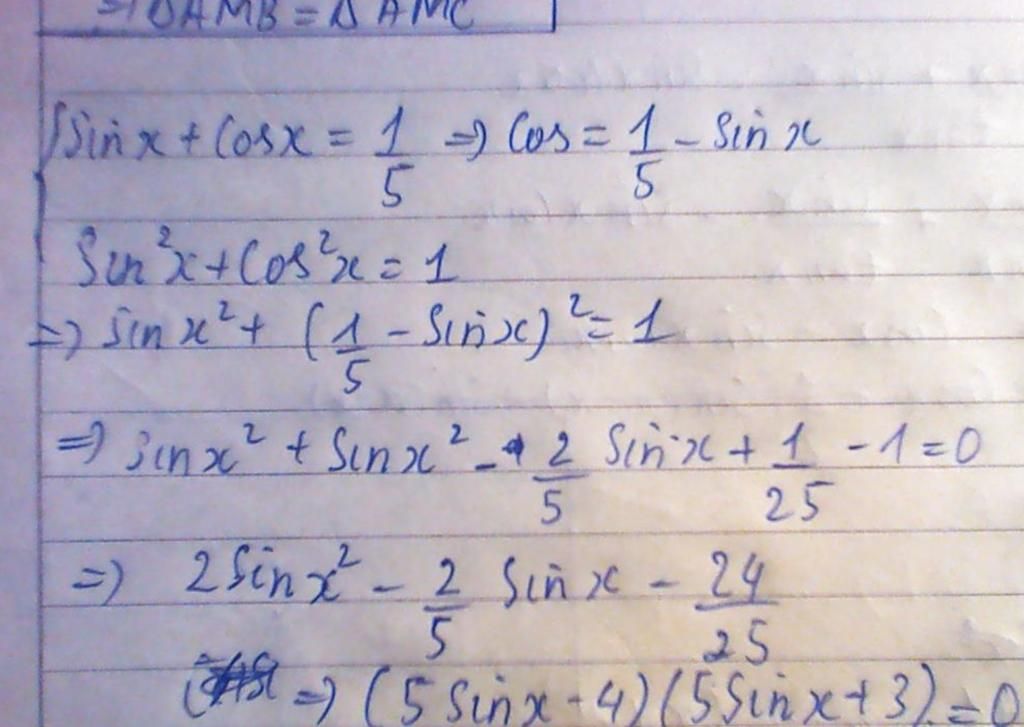 => ΔAMB = ΔAMC
{ Sin x + Cos x = 1/5 => Cos = 1/5 - Sin x
Sin²x + Cos²x = 1
=> Sin x² + (1/5 - Sin x)² = 1
=> Sin x² + Sin x² - 2/5 Sin x + 1/25 - 1 = 0
=> 2 Sin x² - 2/5 Sin x - 24/25
=> (5 Sin x - 4)(5 Sin x + 3) = 0